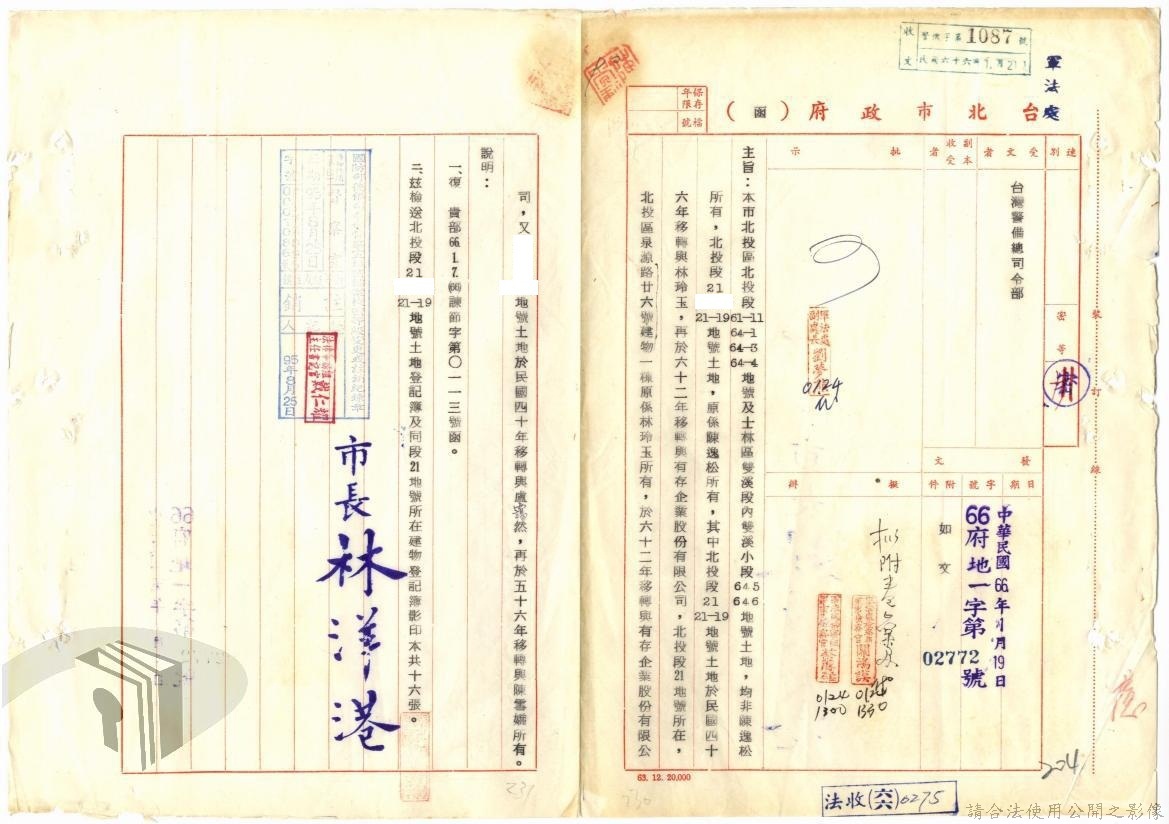 收文 警備字第1087號
軍法處
保存年限
檔號
台北市政府（函）
速別
受文者
副本收受者
批示
台灣警備總司令部
密等
裝訂線
發文
日期
字號
附件
擬辦
中華民國66年1月19日
66府地一字第02772號
如文
0124
0124
1300
0124
主旨：本市北投區北投段61-11 64-1 64-3 64-4地號及士林區雙溪段內雙溪小段645 646地號土地，均非陳逸松
所有，北投段21 21-19地號土地，原係陳逸松所有，其中北投段21 21-19地號土地於民國四十
六年移轉與林玲玉，再於六十二年移轉與有存企業股份有限公司，北投段21地號所在，
北投區泉源路廿六號建物一棟原係林玲玉所有，於六十二年移轉與有存企業股份有限公
司，又 地號土地於民國四十年移轉與盧 然，再於五十六年移轉與陳雪嬌所有。
說明：
一、復 貴部66.1.7. 諫節字第〇一一三號函。
二、茲檢送北投段21 21-19地號土地登記簿及同段21地號所在建物登記簿影印本共十六張。
市長 林洋港
95年8月25日
63. 12. 20,000
204
230
231
法收(六六)0275
請合法使用公開之影像